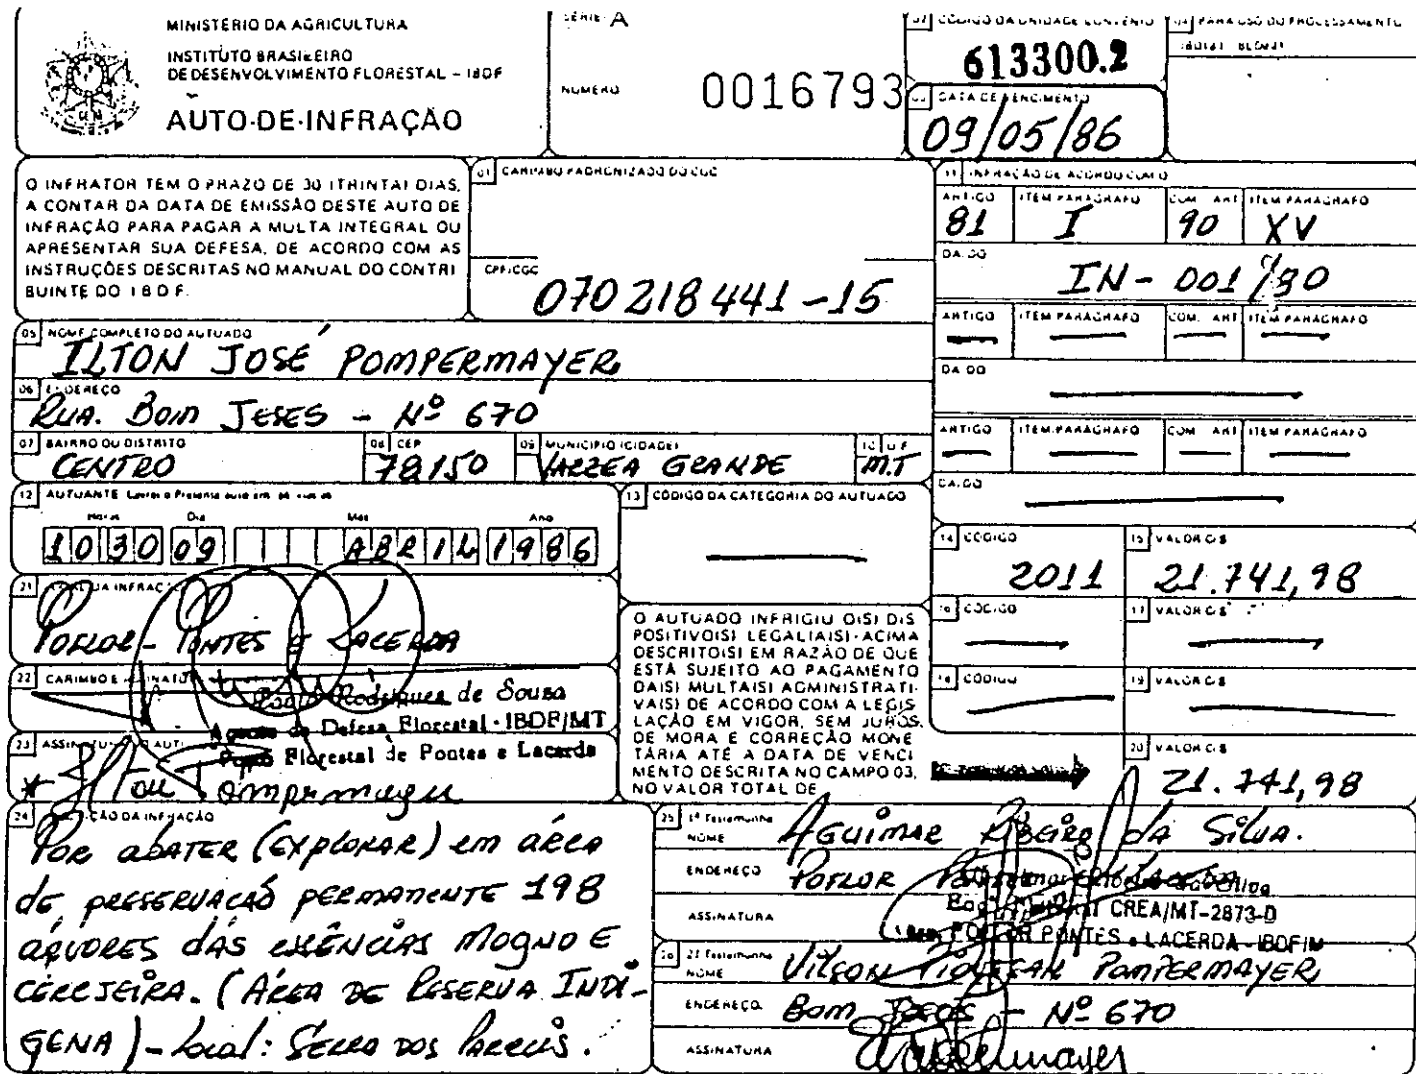 MINISTÉRIO DA AGRICULTURA
INSTITUTO BRASILEIRO
DE DESENVOLVIMENTO FLORESTAL - IBDF
AUTO-DE-INFRAÇÃO
SÉRIE A
NÚMERO 0016793
02 CÓDIGO DA UNIDADE CONVÊNIO
613300.2
03 DATA DE VENCIMENTO
09/05/86
04 PARA USO DO PROCESSAMENTO
O INFRATOR TEM O PRAZO DE 30 (TRINTA) DIAS,
A CONTAR DA DATA DE EMISSÃO DESTE AUTO DE
INFRAÇÃO PARA PAGAR A MULTA INTEGRAL OU
APRESENTAR SUA DEFESA, DE ACORDO COM AS
INSTRUÇÕES DESCRITAS NO MANUAL DO CONTRI
BUINTE DO I B D F.
01 CARIMBO PADRONIZADO DO CGC
CPF/CGC
070218441-15
11 INFRAÇÃO DE ACORDO COM O
ARTIGO ITEM PARÁGRAFO COM. ART ITEM PARÁGRAFO
81 I 90 XV
DA.DO
IN - 001/80
ARTIGO ITEM PARÁGRAFO COM. ART ITEM PARÁGRAFO
DA DO
ARTIGO ITEM PARÁGRAFO COM ART ITEM PARÁGRAFO
DA.DO
05 NOME COMPLETO DO AUTUADO
ILTON JOSÉ POMPERMAYER
06 ENDEREÇO
RUA. BOM JESES - Nº 670
07 BAIRRO OU DISTRITO
CENTRO
08 CEP
78150
09 MUNICÍPIO (CIDADE)
VARZEA GRANDE
10 U F
M.T
12 AUTUANTE
Horas Dia Mês Ano
1030 09 ABRIL 1986
13 CÓDIGO DA CATEGORIA DO AUTUADO
14 CÓDIGO 15 VALOR CR$
2011 21.741,98
16 CÓDIGO 17 VALOR CR$
18 CÓDIGO 19 VALOR CR$
20 VALOR CR$
21.741,98
21 LOCAL DA INFRAÇÃO
POFLOR - PONTES E LACERDA
22 CARIMBO E ASSINATU
Rodrigues de Souza
Agente de Defesa Florestal - IBDF/MT
Posto Florestal de Pontes e Lacerda
23 ASSINATURA DO AUTU
* Ilton Pompermayer
O AUTUADO INFRIGIU O(S) DIS
POSITIVO(S) LEGAL(IAIS) ACIMA
DESCRITO(S) EM RAZÃO DE QUE
ESTÁ SUJEITO AO PAGAMENTO
DA(S) MULTA(S) ADMINISTRATI-
VA(S) DE ACORDO COM A LEGIS
LAÇÃO EM VIGOR, SEM JUROS,
DE MORA E CORREÇÃO MONE
TÁRIA ATÉ A DATA DE VENCI
MENTO DESCRITA NO CAMPO 03,
NO VALOR TOTAL DE
24 DESCRIÇÃO DA INFRAÇÃO
POR ABATER (EXPLORAR) em área
de preservação permanente 198
ÁRVORES DAS ESSÊNCIAS MOGNO E
CEREJEIRA. (ÁREA DE RESERVA INDÍ-
GENA) - Local: SERRA DOS PARECIS.
25 1ª Testemunha
NOME AGUIMAR RIBEIRO DA SILVA.
ENDEREÇO POFLOR
ASSINATURA
CREA/MT-2873-D
PONTES e LACERDA - IBDF/M
26 2ª Testemunha
NOME VILSON POMPERMAYER
ENDEREÇO BOM - Nº 670
ASSINATURA